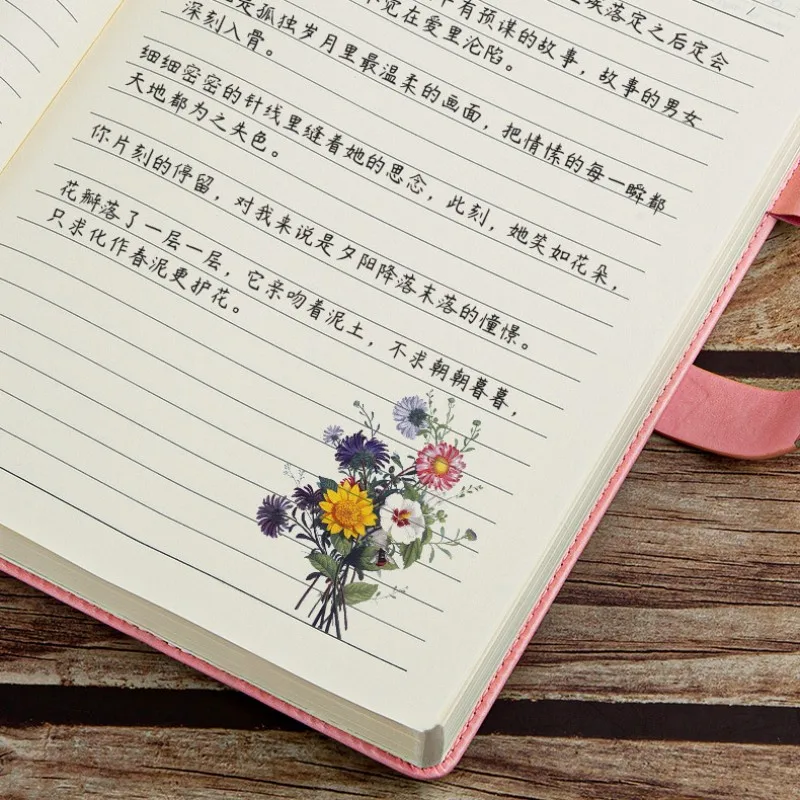 埃落定之后定会
有预谋的故事，故事的男女
觉在爱里沦陷。
是孤独岁月里最温柔的画面，把情愫的每一瞬都
深刻入骨。
细细密密的针线里缝着她的思念，此刻，她笑如花朵，
天地都为之失色。
你片刻的停留，对我来说是夕阳降落末落的憧憬。
花瓣落了一层一层，它亲吻着泥土，不求朝朝暮暮，
只求化作春泥更护花。